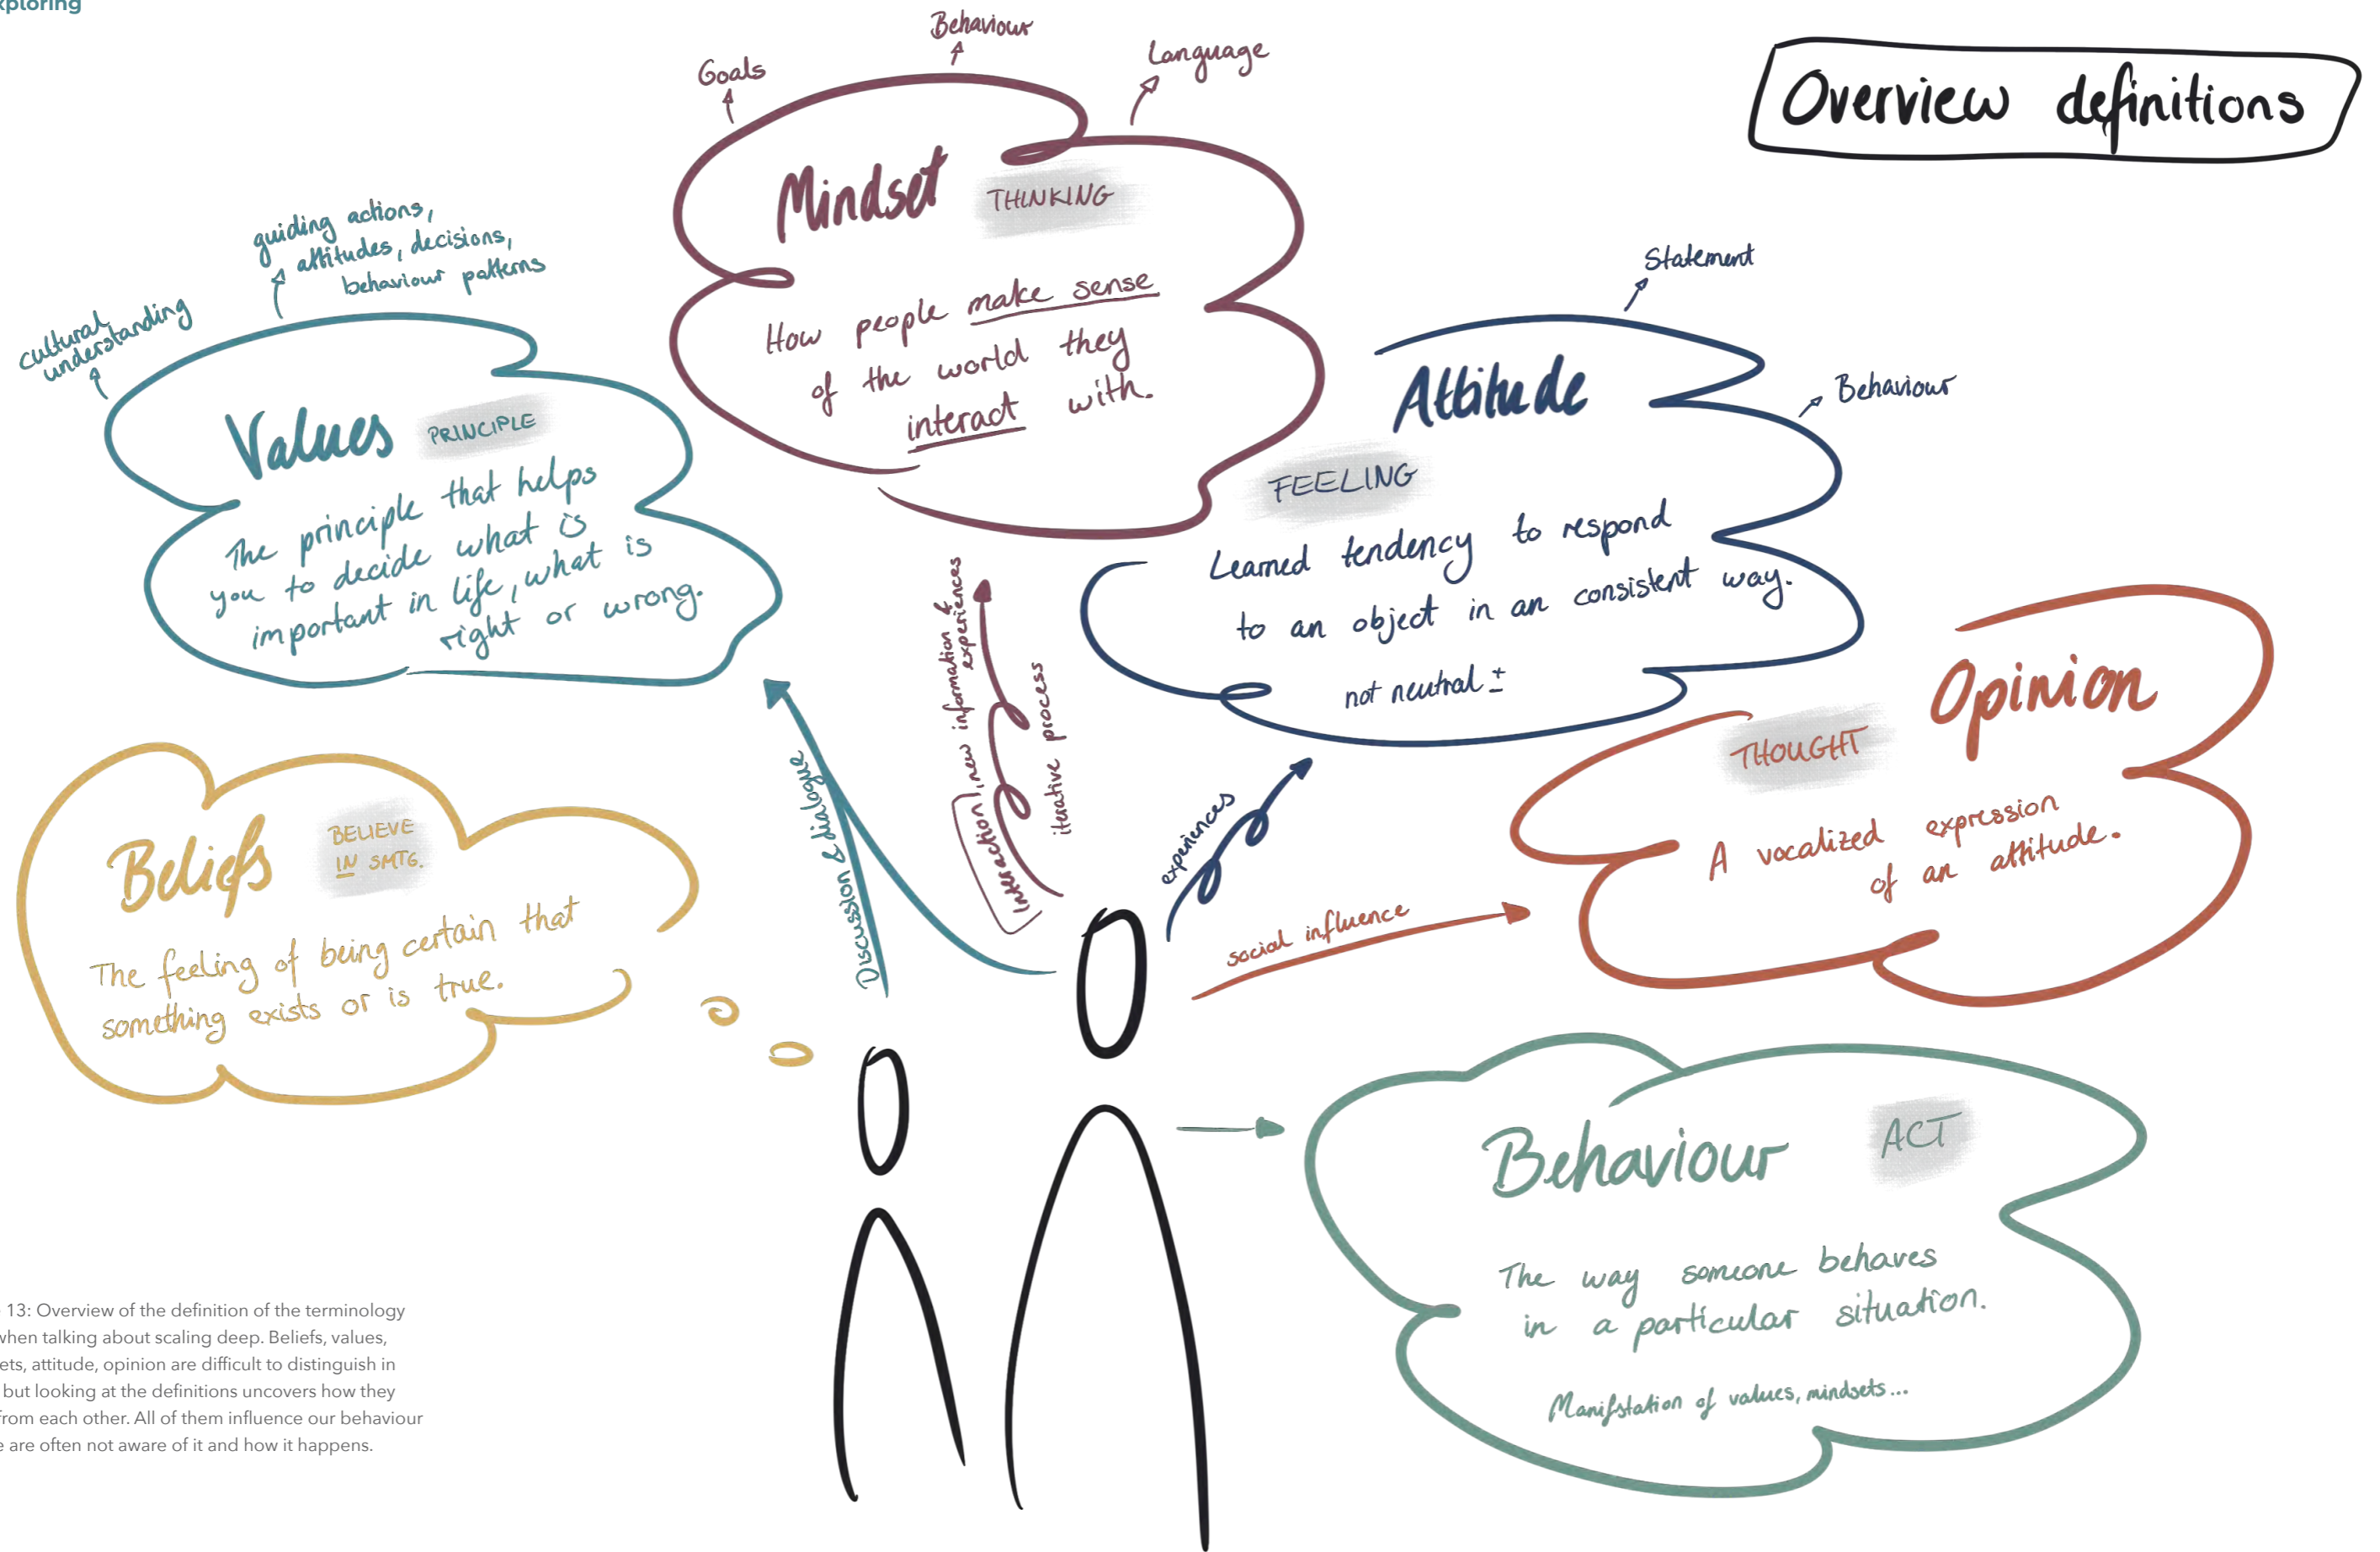 xploring
Overview definitions
Goals
Behaviour
Language
Mindset
THINKING
How people make sense
of the world they
interact with.
cultural
understanding
guiding actions,
attitudes, decisions,
behaviour patterns
Values
PRINCIPLE
The principle that helps
you to decide what is
important in life, what is
right or wrong.
Statement
Behaviour
Attitude
FEELING
Learned tendency to respond
to an object in an consistent way.
not neutral ±
Opinion
THOUGHT
A vocalized expression
of an attitude.
Beliefs
BELIEVE
IN SMTG.
The feeling of being certain that
something exists or is true.
Discussion & dialogue
Interaction, new information &
experiences
iterative process
experiences
social influence
Behaviour
ACT
The way someone behaves
in a particular situation.
Manifstation of values, mindsets...
13: Overview of the definition of the terminology
when talking about scaling deep. Beliefs, values,
ets, attitude, opinion are difficult to distinguish in
but looking at the definitions uncovers how they
from each other. All of them influence our behaviour
e are often not aware of it and how it happens.